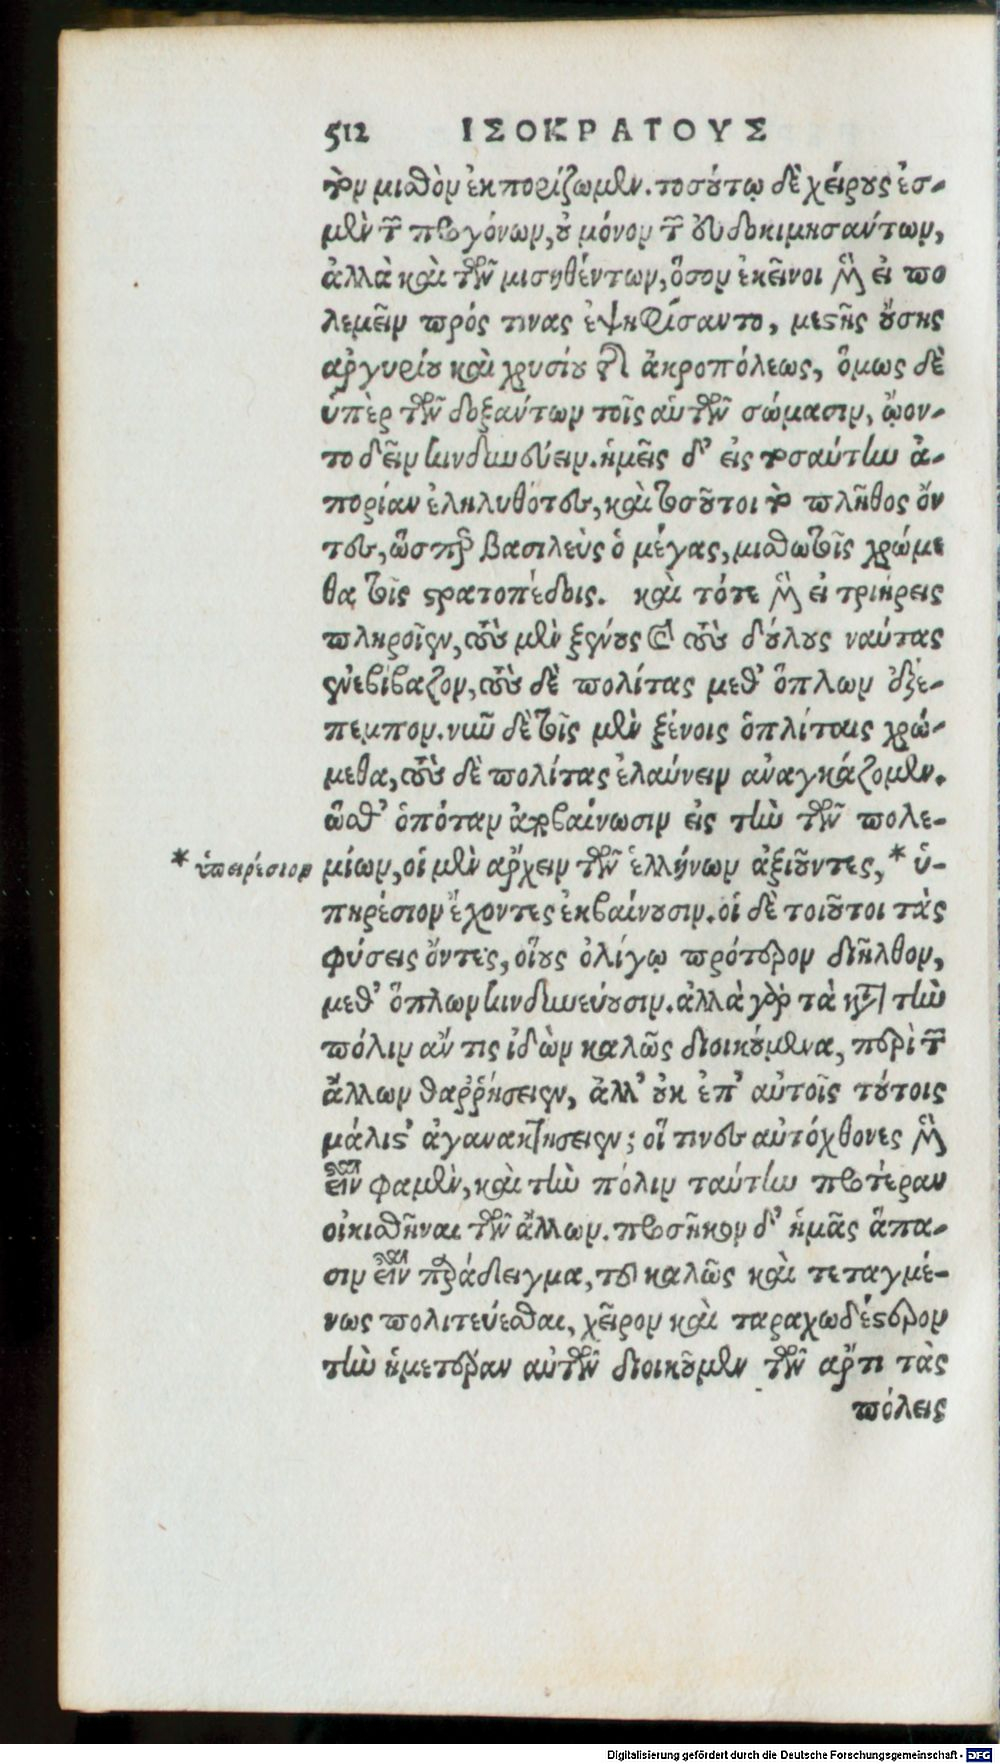 512 ΙΣΟΚΡΑΤΟΥΣ
τὸν μισθὸν ἐκπορίζωμεν. τοσούτῳ δὲ χείρους ἐσ-
μὲν τῶν προγόνων, οὐ μόνον τῶν εὐδοκιμησάντων,
ἀλλὰ καὶ τῶν μισηθέντων, ὅσον ἐκεῖνοι μὲν εἰ πο
λεμεῖν πρός τινας ἐψηφίσαντο, μεστῆς οὔσης
ἀργυρίου καὶ χρυσίου τῆς ἀκροπόλεως, ὅμως δὲ
ὑπὲρ τῶν δοξάντων τοῖς αὑτῶν σώμασιν, ᾤον-
το δεῖν κινδυνεύειν. ἡμεῖς δ' εἰς τοσαύτην ἀ-
πορίαν ἐληλυθότες, καὶ τοσοῦτοι τὸ πλῆθος ὄν
τες, ὥσπερ βασιλεὺς ὁ μέγας, μισθωτοῖς χρώμε
θα τοῖς στρατοπέδοις. καὶ τότε μὲν εἰ τριήρεις
πληροῖεν, τοὺς μὲν ξένους καὶ τοὺς δούλους ναύτας
ἐνεβίβαζον, τοὺς δὲ πολίτας μεθ' ὅπλων ἐξέ-
πεμπον. νῦν δὲ τοῖς μὲν ξένοις ὁπλίταις χρώ-
μεθα, τοὺς δὲ πολίτας ἐλαύνειν ἀναγκάζομεν.
ὥσθ' ὁπόταν ἀποβαίνωσιν εἰς τὴν τῶν πολε-
* ὑπειρέσιον μίων, οἱ μὲν ἄρχειν τῶν ἑλλήνων ἀξιοῦντες, * ὑ-
πηρέσιον ἔχοντες ἐκβαίνουσιν. οἱ δὲ τοιοῦτοι τὰς
φύσεις ὄντες, οἵους ὀλίγῳ πρότερον διῆλθον,
μεθ' ὅπλων κινδυνεύουσιν. ἀλλὰ γὰρ τὰ κατὰ τὴν
πόλιν ἄν τις ἰδὼν καλῶς διοικούμενα, περὶ τῶν
ἄλλων θαῤῥήσειεν, ἀλλ' οὐκ ἐπ' αὐτοῖς τούτοις
μάλιστ' ἀγανακτήσειεν; οἵ τινες αὐτόχθονες μὲν
εἶναι φαμὲν, καὶ τὴν πόλιν ταύτην προτέραν
οἰκισθῆναι τῶν ἄλλων. προσῆκον δ' ἡμᾶς ἅπα-
σιν εἶναι παράδειγμα, τοῦ καλῶς καὶ τεταγμέ-
νως πολιτεύεσθαι, χεῖρον καὶ ταραχωδέστερον
τὴν ἡμετέραν αὐτῶν διοικοῦμεν τῶν ἄρτι τὰς
πόλεις
Digitalisierung gefördert durch die Deutsche Forschungsgemeinschaft - DFG